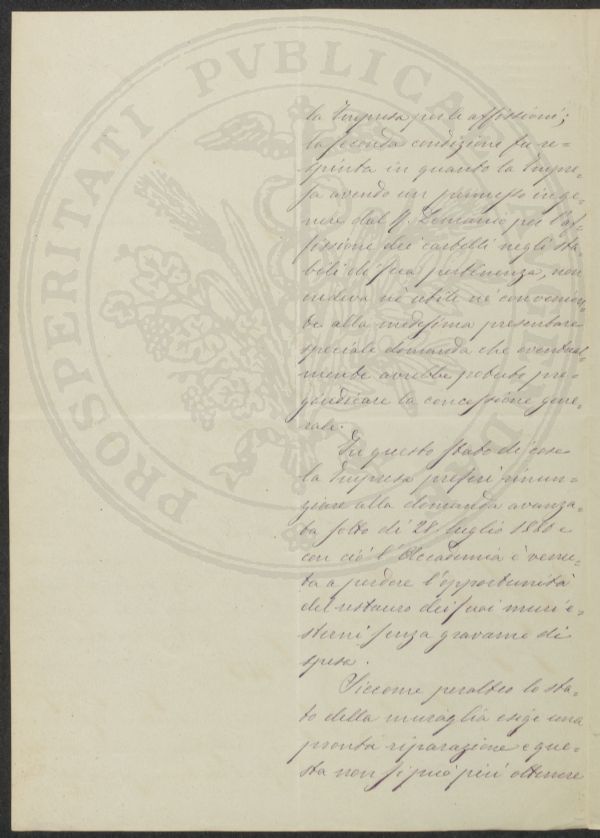 PROSPERITATI PVBLICAE
la Impresa per le affissioni;
la seconda condizione fu re=
spinta in quanto la Impre=
sa avendo un permesso in ge=
nere dal R. Demanio per l'af=
fissione dei cartelli negli sta=
bili di sua pertinenza, non
vedeva nè utile nè convenien=
te alla medesima presentare
speciale domanda che eventual=
mente avrebbe potuto pre=
giudicare la concessione gene=
rale.
In questo stato di cose
la Impresa preferì rinun=
ziare alla domanda avanza=
ta sotto dì 28 luglio e
con ciò l'Accademia è venu=
ta a perdere l'opportunità
del restauro dei suoi muri e=
sterni senza gravame di
spesa.
Siccome peraltro lo sta=
to della muraglia esige una
pronta riparazione e que=
sta non si può più ottenere